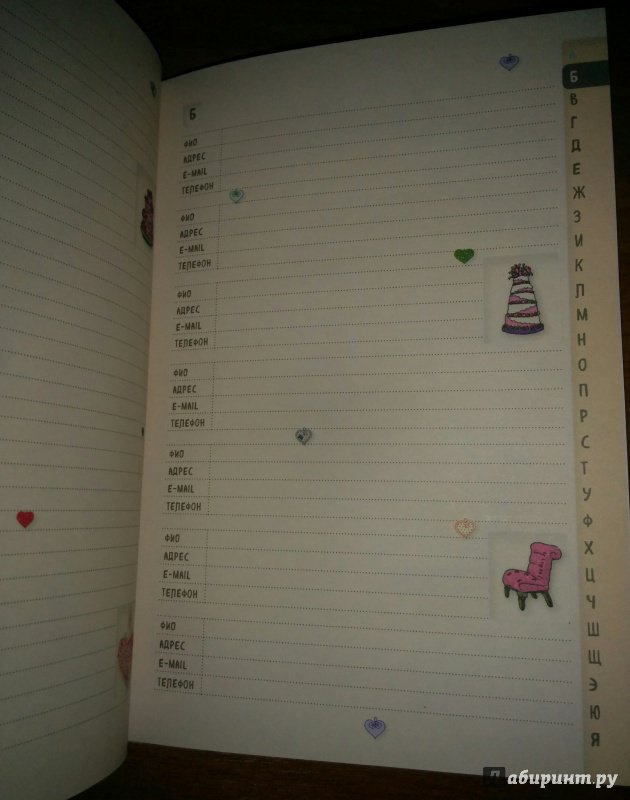 Б
ФИО
АДРЕС
E-MAIL
ТЕЛЕФОН
ФИО
АДРЕС
E-MAIL
ТЕЛЕФОН
ФИО
АДРЕС
E-MAIL
ТЕЛЕФОН
ФИО
АДРЕС
E-MAIL
ТЕЛЕФОН
ФИО
АДРЕС
E-MAIL
ТЕЛЕФОН
ФИО
АДРЕС
E-MAIL
ТЕЛЕФОН
ФИО
АДРЕС
E-MAIL
ТЕЛЕФОН
Б
В
Г
Д
Е
Ж
З
И
К
Л
М
Н
О
П
Р
С
Т
У
Ф
Х
Ц
Ч
Ш
Щ
Э
Ю
Я
Лабиринт.ру